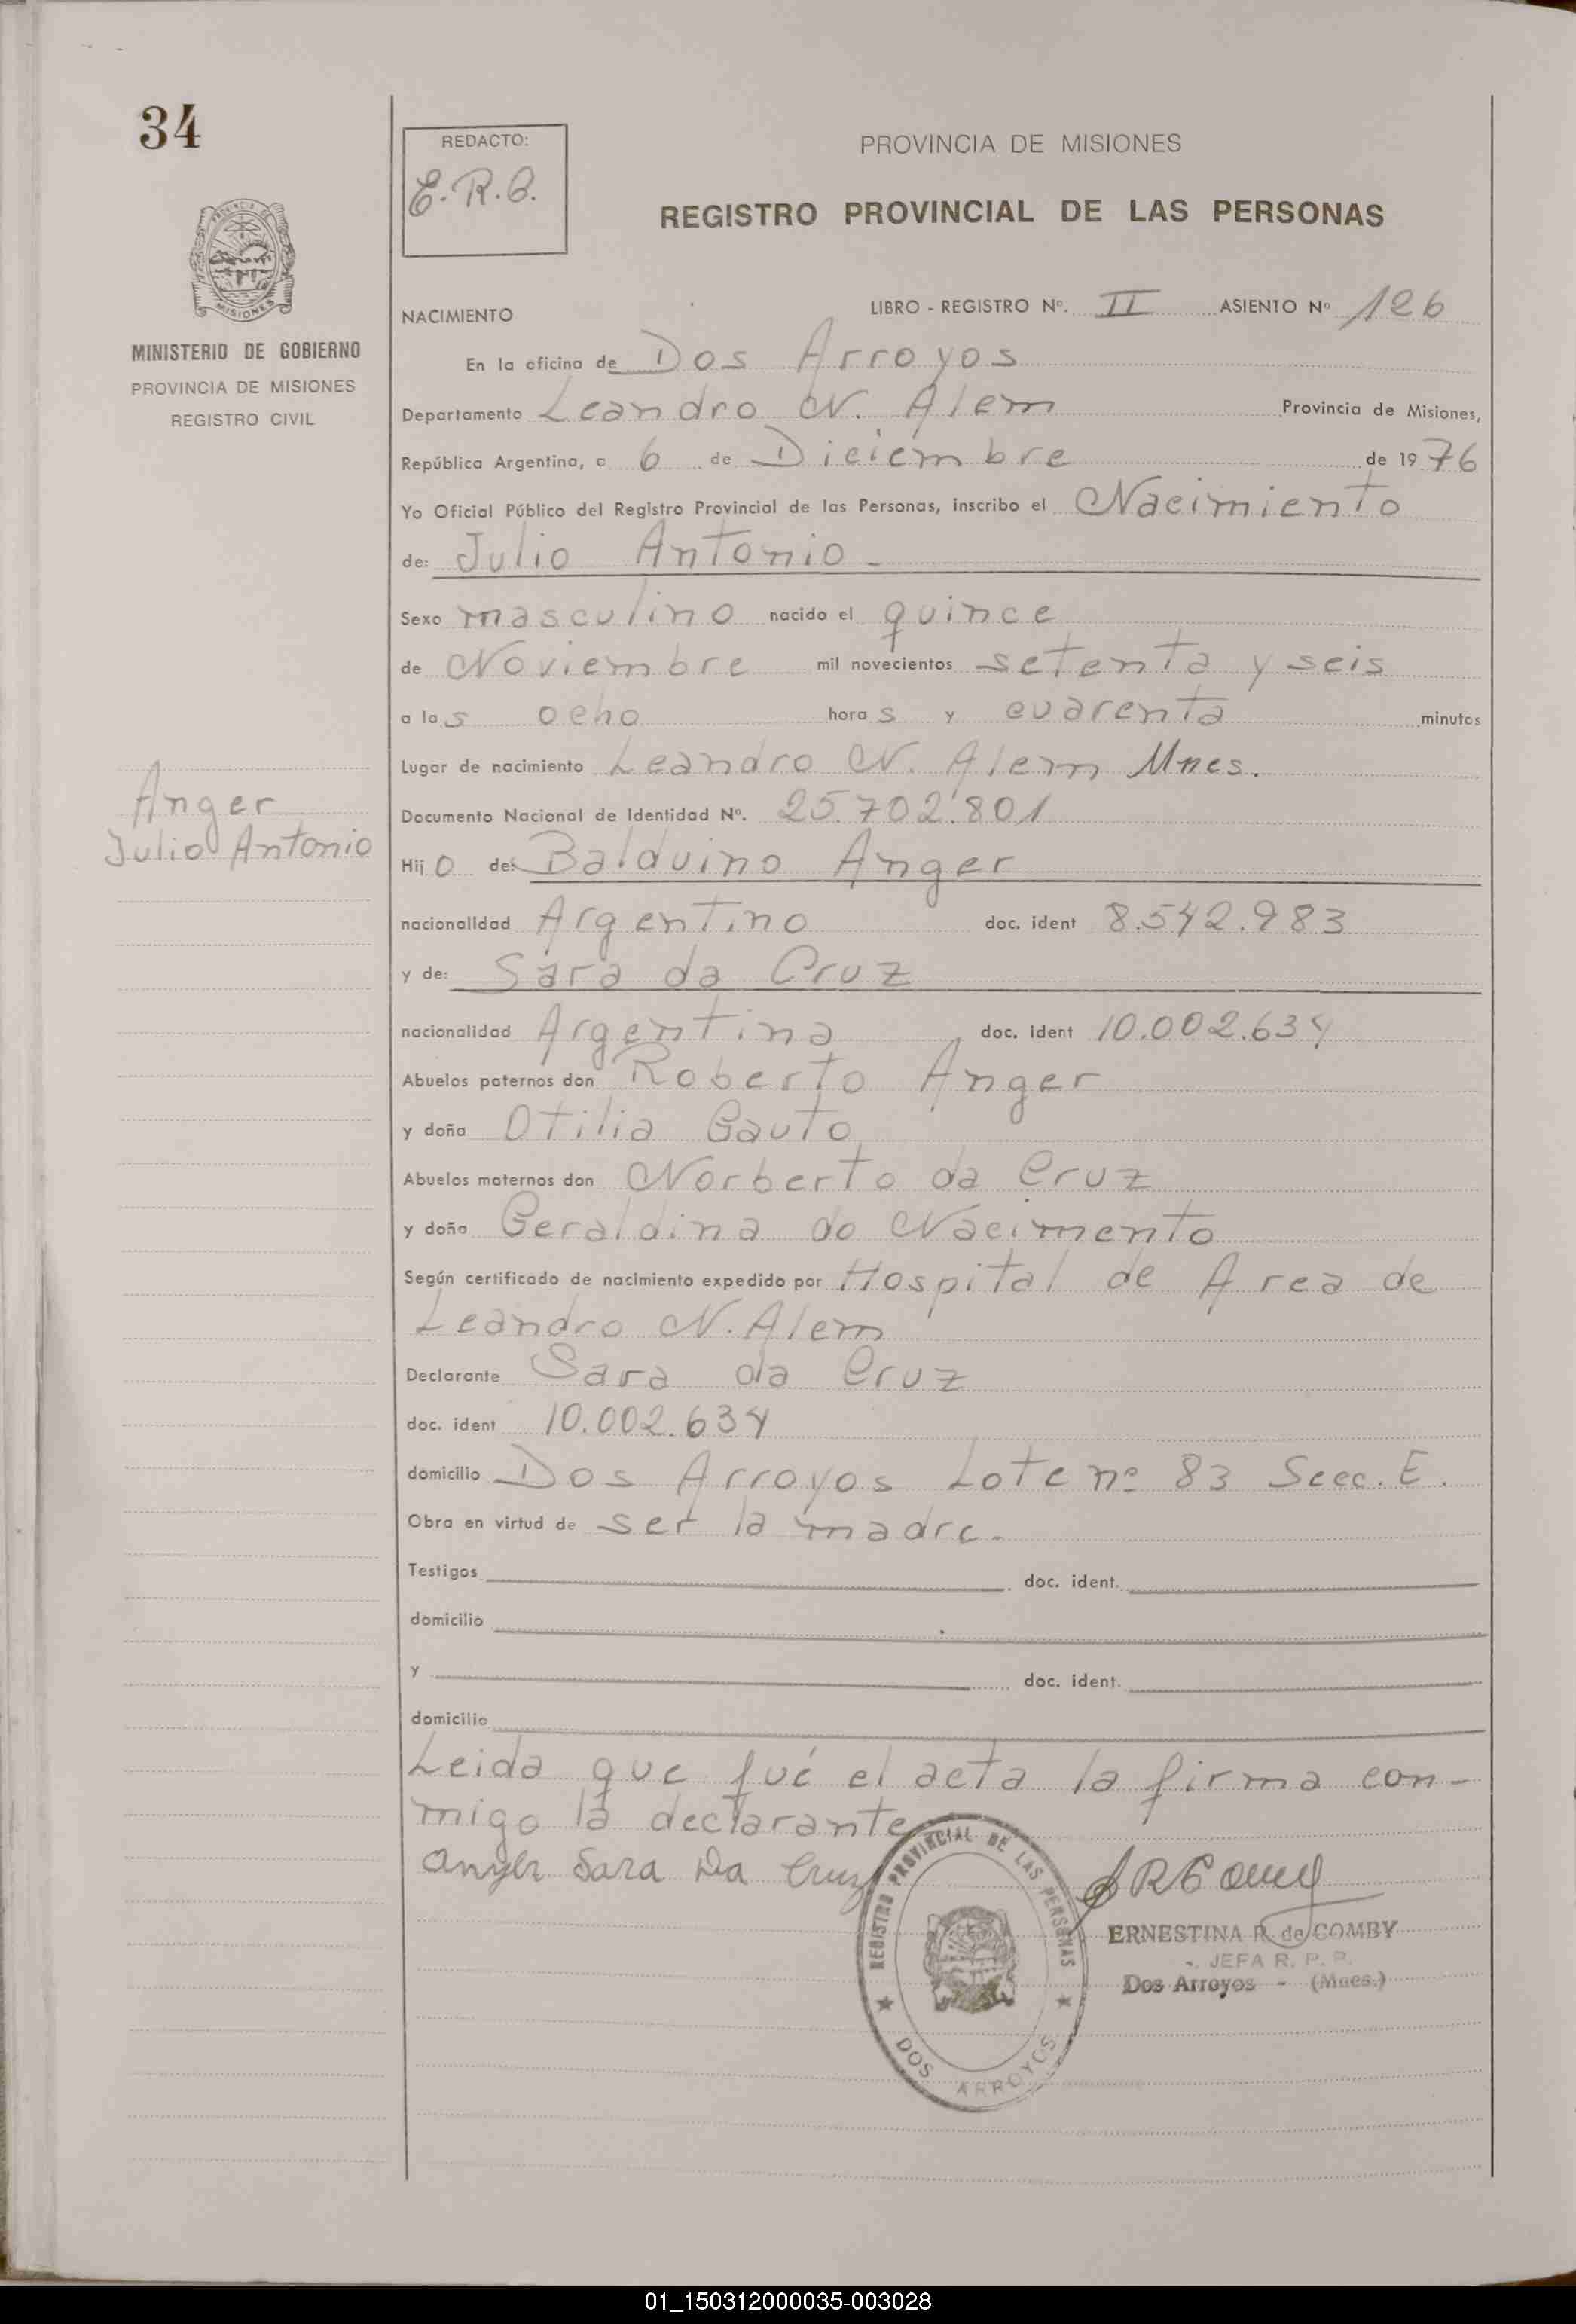 34
REDACTO:
E.R.C.
PROVINCIA DE MISIONES
REGISTRO PROVINCIAL DE LAS PERSONAS
MISIONES
MINISTERIO DE GOBIERNO
PROVINCIA DE MISIONES
REGISTRO CIVIL
NACIMIENTO
LIBRO - REGISTRO Nº. II ASIENTO Nº 126
En la oficina de Dos Arroyos
Departamento Leandro N. Alem Provincia de Misiones,
República Argentina, a 6 de Diciembre de 1976
Yo Oficial Público del Registro Provincial de las Personas, inscribo el Nacimiento
de: Julio Antonio -
Sexo masculino nacido el quince
de Noviembre mil novecientos setenta y seis
a las ocho horas y cuarenta minutos
Lugar de nacimiento Leandro N. Alem Mnes.
Anger
Julio Antonio
Documento Nacional de Identidad Nº. 25.702.801
Hijo de: Balduino Anger
nacionalidad Argentino doc. ident 8.542.983
y de: Sara da Cruz
nacionalidad Argentina doc. ident 10.002.634
Abuelos paternos don Roberto Anger
y doña Otilia Gauto
Abuelos maternos don Norberto da Cruz
y doña Geraldina do Nacimento
Según certificado de nacimiento expedido por Hospital de Area de
Leandro N. Alem
Declarante Sara da Cruz
doc. ident 10.002.634
domicilio Dos Arroyos Lote nº 83 Secc. E.
Obra en virtud de ser la madre.
Testigos doc. ident.
domicilio
y doc. ident.
domicilio
Leida que fué el acta la firma con-
migo la declarante
Anger Sara Da Cruz
REGISTRO PROVINCIAL DE LAS PERSONAS
DOS ARROYOS
ERNESTINA R. de COMBY
JEFA R. P. P.
Dos Arroyos - (Mnes.)
01_150312000035-003028